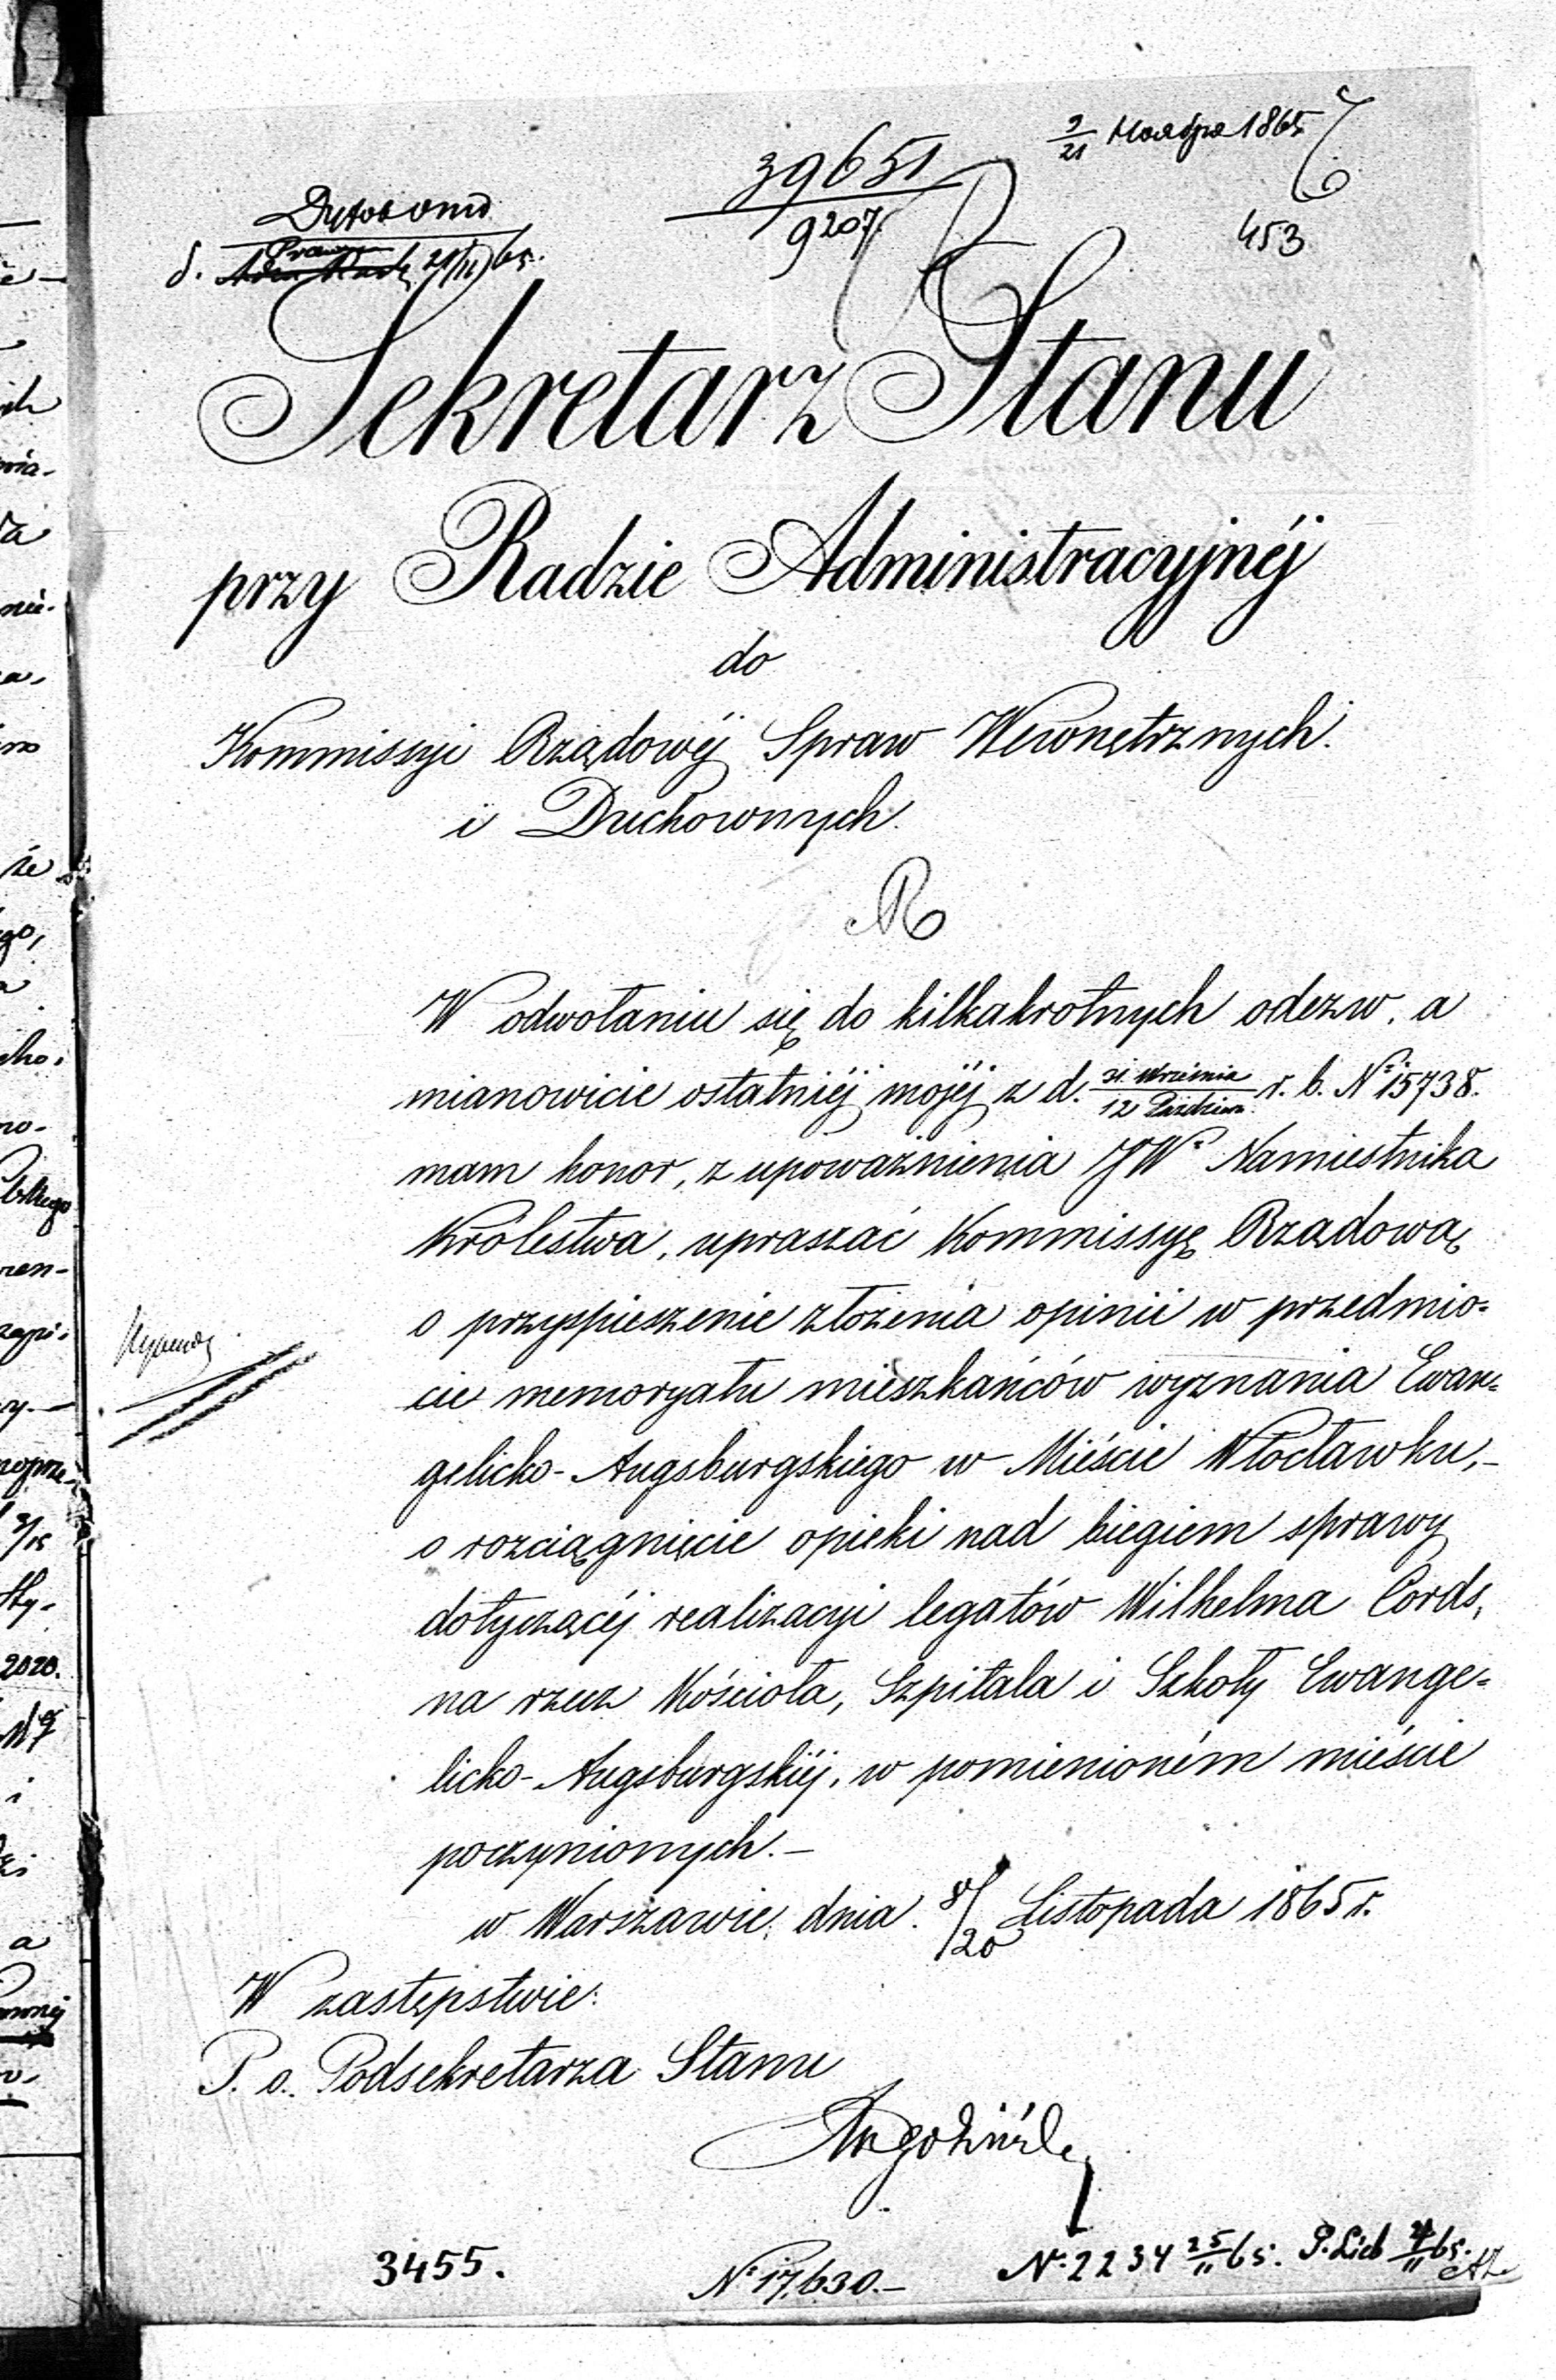 9/21 Ноября 1865
39651
9207
453
21/11 65.
Sekretarz Stanu
przy Radzie Administracyjnéj
do
Kommissyi Rządowéj Spraw Wewnętrznych
i Duchownych.
W odwołaniu się do kilkakrotnych odezw, a
mianowicie ostatniéj mojéj z d. Września / 12 Paździer. r. b. Nr 15738.
mam honor, z upoważnienia JWo Namiestnika
Królestwa, upraszać Kommissyę Rządową
o przyspieszenie złożenia opinii w przedmio=
cie memoryału mieszkańców wyznania Ewan=
gelicko-Augsburgskiego w Mieście Włocławku,-
o rozciągnięcie opieki nad biegiem sprawy
dotyczącéj realizacyi legatów Wilhelma Cords,
na rzecz Kościoła, Szpitala i Szkoły Ewange=
licko-Augsburgskiéj, w pomienioném mieście
poczynionych.-
w Warszawie, dnia 8/20 Listopada 1865 r.
W zastępstwie:
P. o. Podsekretarza Stanu
3455.
Nr 17,630.-
No 2234 25/11 65.